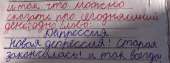 итак, что можно
сказать про сегодняшний
день, одно слово:
Депрессия
новая депрессия! старая
закончилась! и так всегда